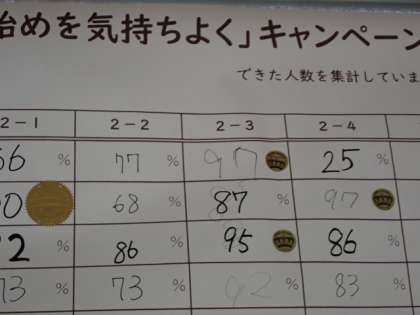 始めを気持ちよく」キャンペーン
できた人数を集計していま
2－1 2－2 2－3 2－4
66 % 77 % 97 25 %
00 68 % 87 % 97
72 % 86 % 95 86 %
73 % 73 % 92 % 83 %